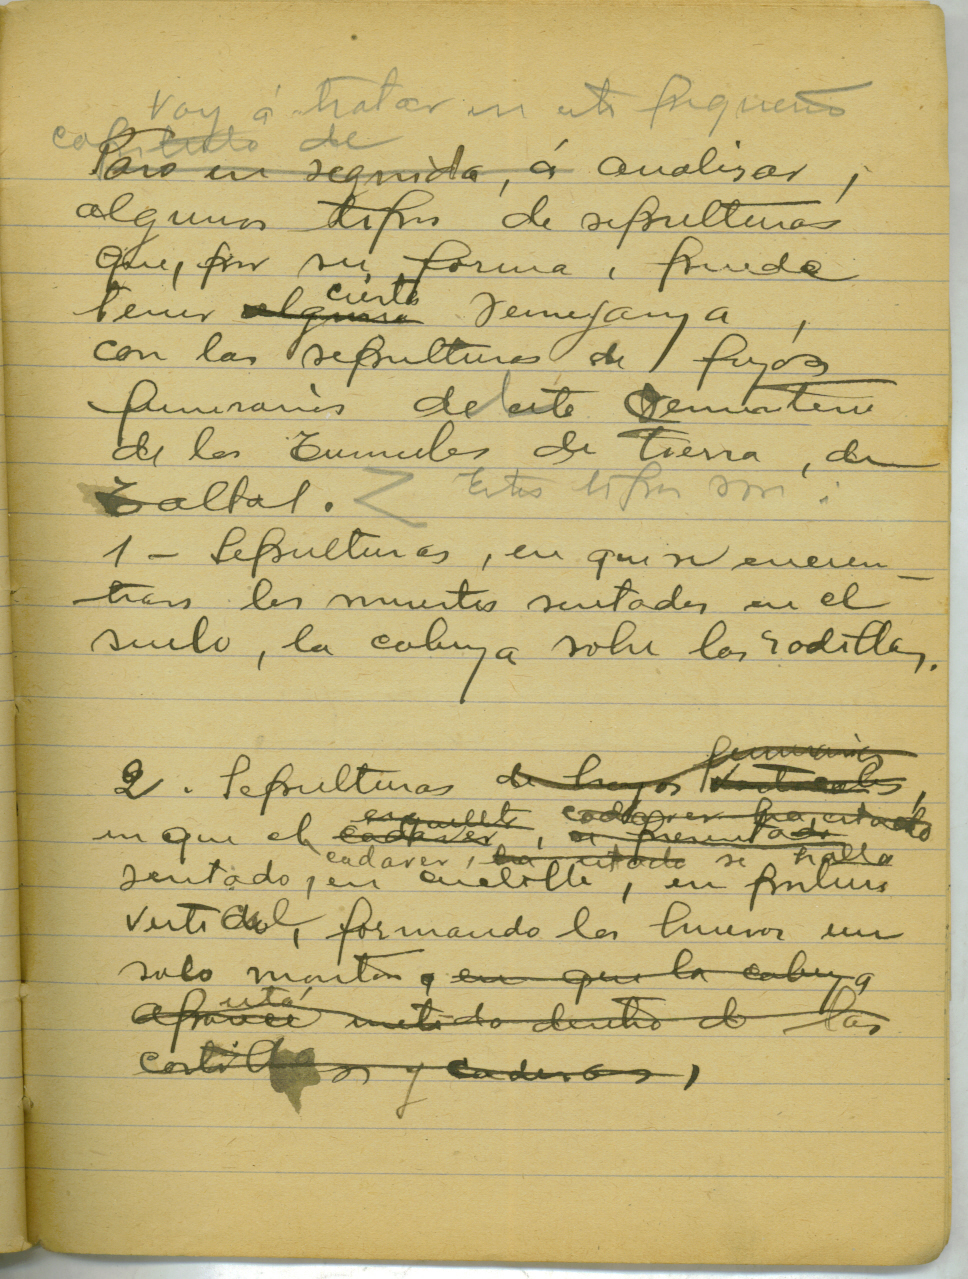 Voy á tratar en este pequeño
capítulo de
Paso en seguida, á analizar,
algunos tipos de sepulturas
que, por su forma, pueda
cierta
tener alguna semejanza,
con las sepulturas de
funerarios de este Cementerio
de los Tumulos de tierra, de
Taltal. Estos tipos son:
1 - Sepulturas, en que se encuen-
tran los muertos sentados en el
suelo, la cabeza sobre las rodillas.
funerarios
2. Sepulturas de hoyos verticales,
esqueleto cadaver ha estado
en que el cadaver, se presenta
cadaver, ha estado se halla
sentado, en cuclilla, en postura
vertical, formando los huesos un
solo monton, en que la cabeza
está
aparece metido dentro de las
costillas y caderas,